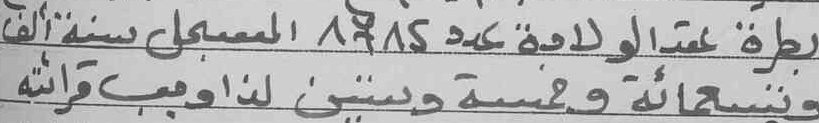 بطرة عقد الولادة عدد المسجل سنة ألف
وتسعمائة وخمسة وستين لذا وجب قرائته